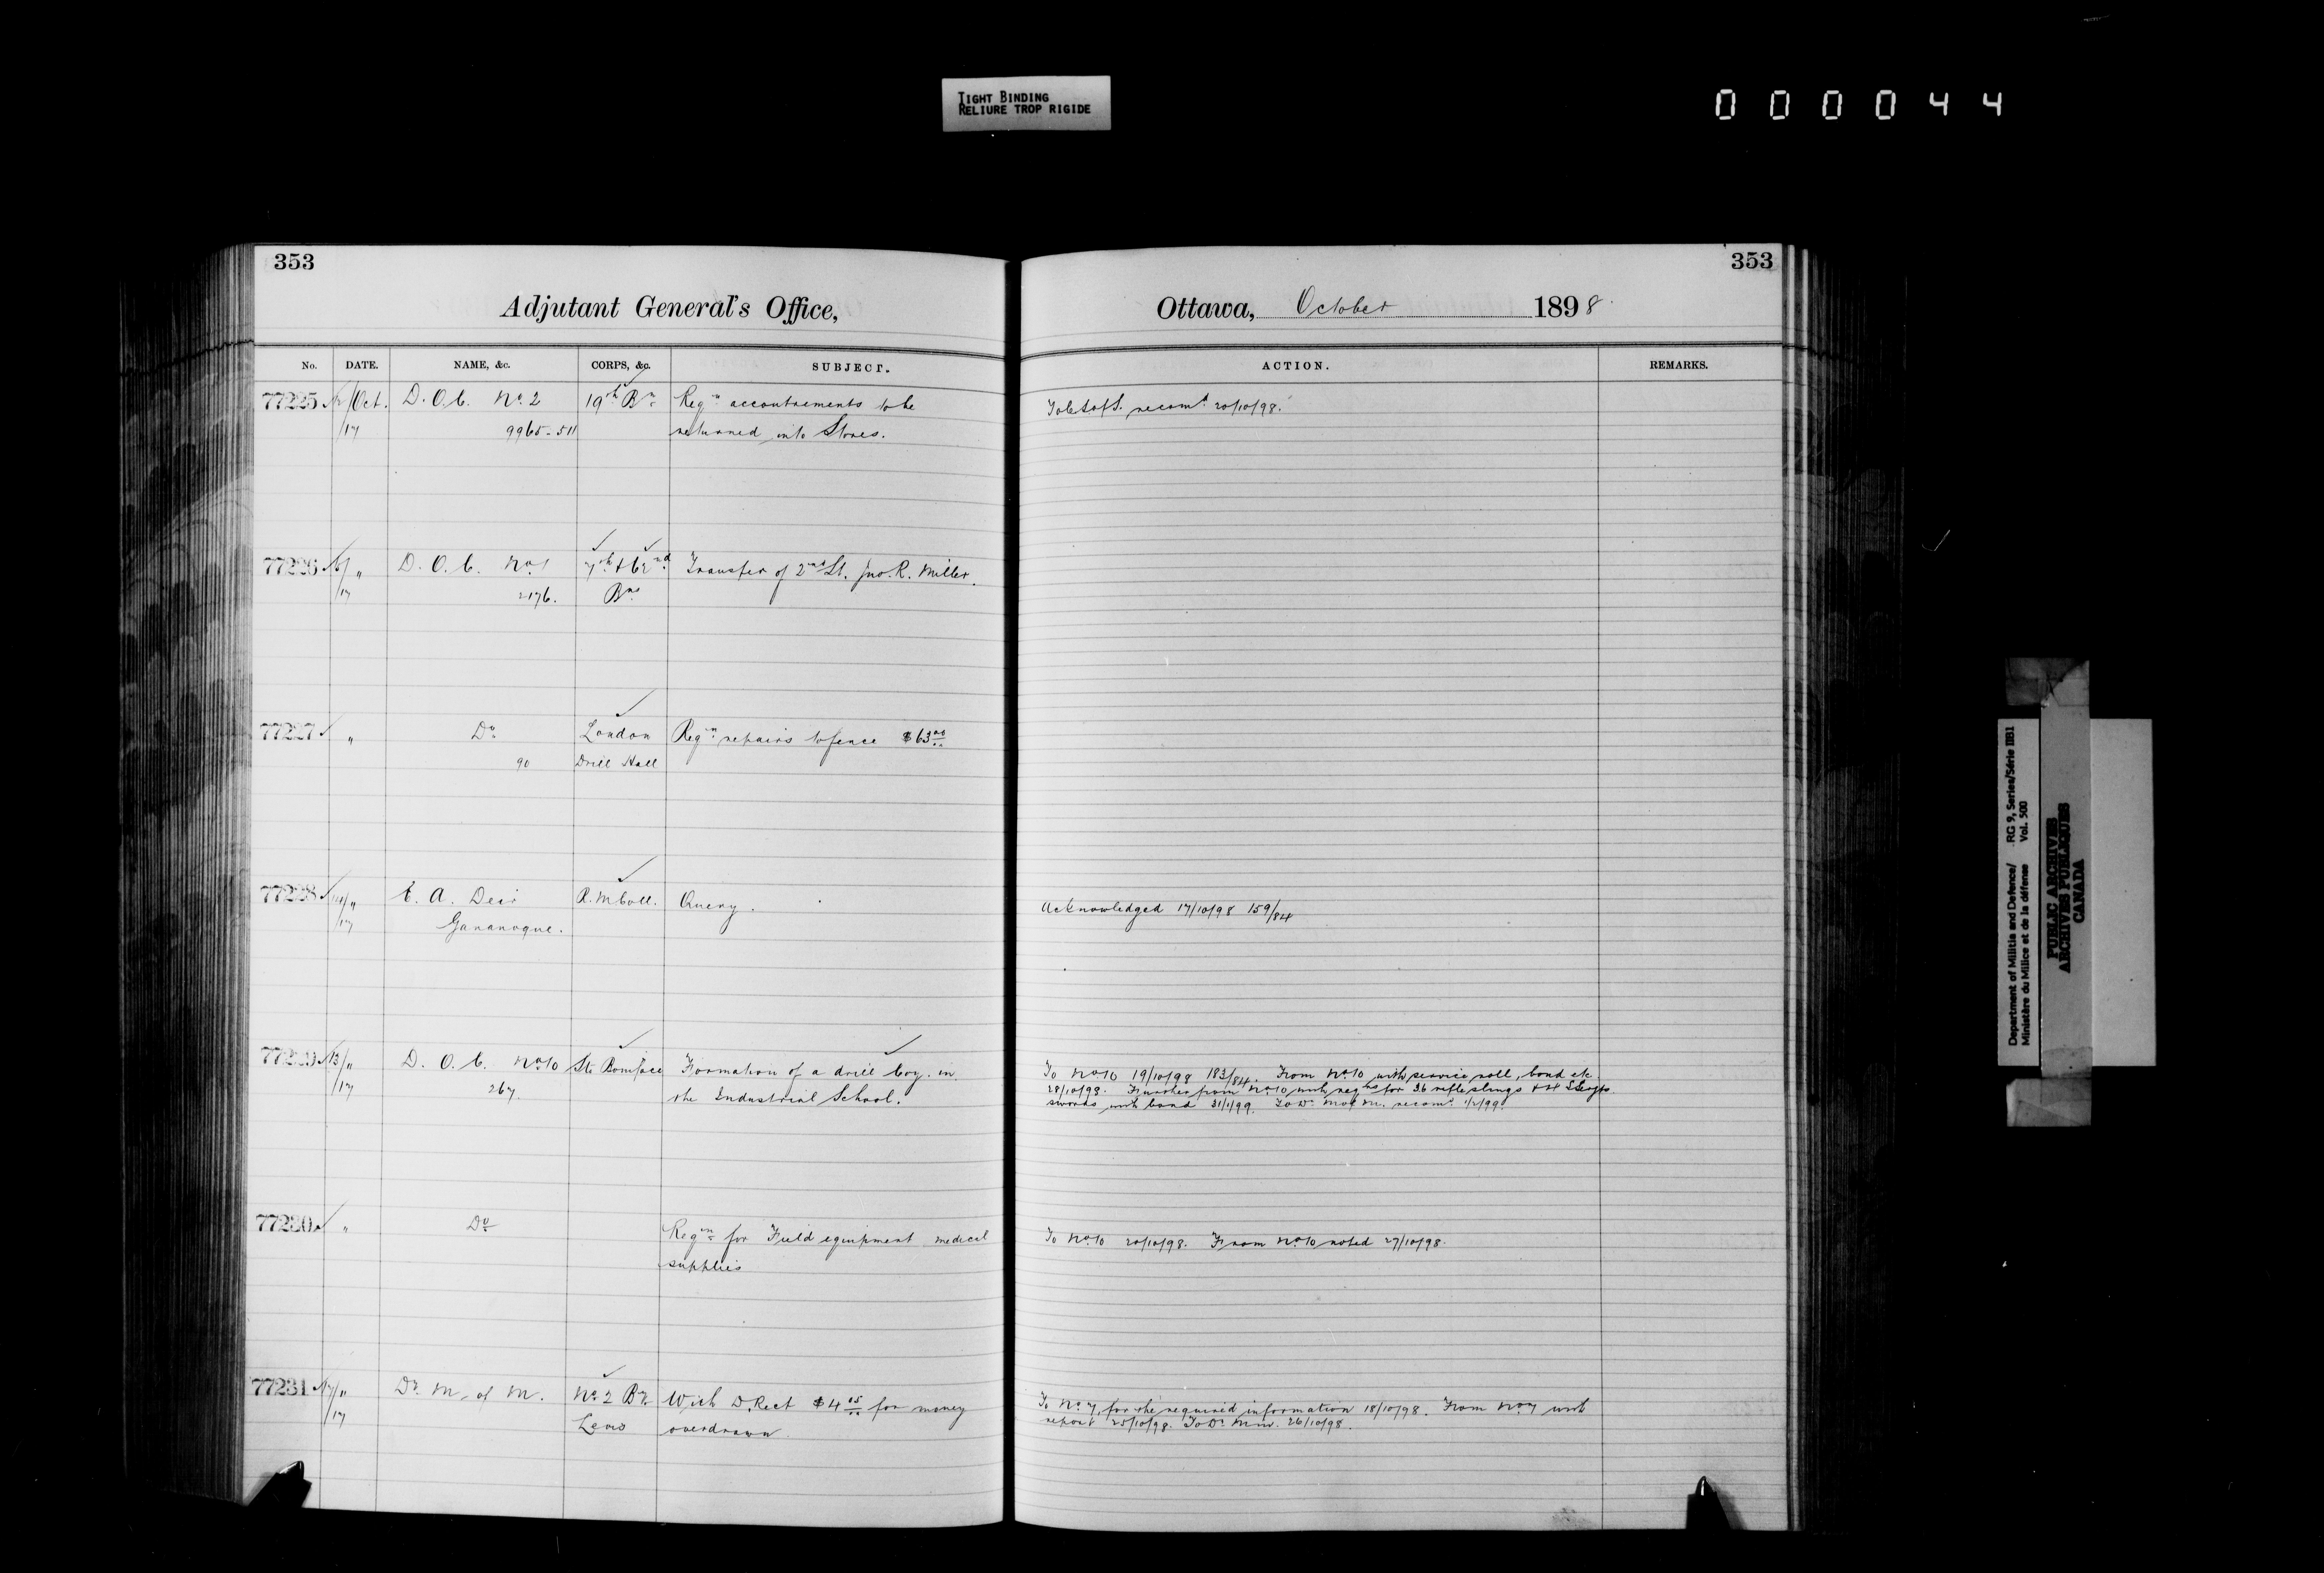 TIGHT BINDING
RELIURE TROP RIGIDE
000044
353
Adjutant General's Office,
No. DATE. NAME, &c. CORPS, &c. SUBJECT.
77225 12/Oct. D.O.C. No. 2 19th Bn. Reqn. accoutrements to be
/17 9965-511 returned into Stores.
77226 " D.O.C. No 1 7th & 62nd Transfer of 2nd Lt. Jno. R. Miller.
/17 2176. Bns.
77227 " Do London Reqn. repairs to fence $63 00
90 Drill Hall
77228 14/" C. A. R. M Coll. Query.
/17 Gananoque.
77229 13/" D. O. C. No 10 St. Boniface Formation of a drill Coy. in
/17 267. the Industrial School.
77230 " Do Reqn for Field equipment medical
supplies
77231 17/" Dr. M. of M. No. 2 Bn. With D. Rect $4 05 for money
/17 overdrawn
353
Ottawa, October 1898
ACTION. REMARKS.
recomd. 20/10/98.
Acknowledged 17/10/98 159/84
To No 10 19/10/98 183/84. From No 10 with service roll, bond etc.
28/10/98. Further from No 10 with reqns for 36 rifle slings & 4
swords with bond 31/1/99. To D. M of M. recomd. 1/2/99.
To No 10 20/10/98. From No 10 noted 27/10/98.
To No. 7, for the required information 18/10/98. From No 7 with
report 25/10/98. To D. Min. 26/10/98.
Department of Militia and Defence/ RG 9, Series/Série IIB1
Ministère du Milice et de la défense Vol. 500
PUBLIC ARCHIVES
ARCHIVES PUBLIQUES
CANADA